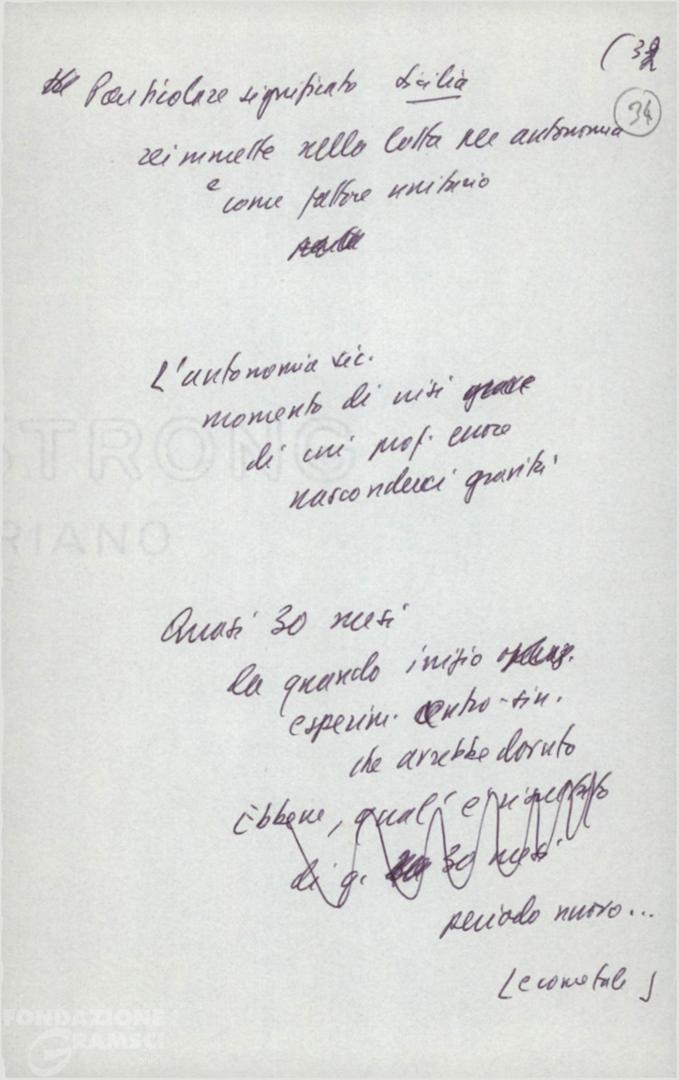 (32
34
Particolare significato Sicilia
reimmette nella lotta per autonomia
e come fattore unitario
L'autonomia sic.
momento di crisi grave
di cui prof. errore
nasconderci gravità
Quasi 30 mesi
da quando inizio
esperim. centro-sin.
che avrebbe dovuto
Ebbene, qual è risultato
di q. 30 mesi
periodo nuovo...
[e come tale]
STRONG
RIANO
FONDAZIONE
GRAMSCI